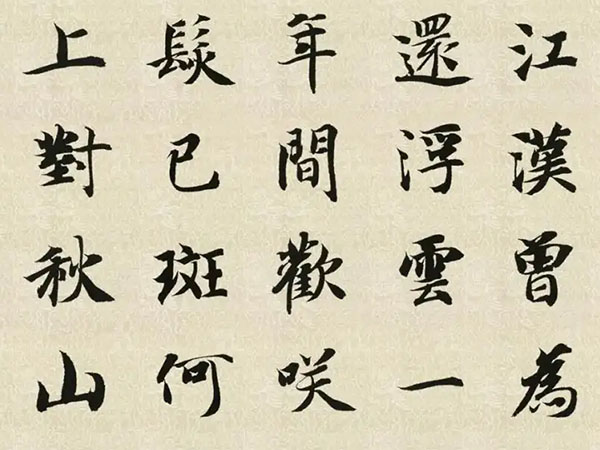 江漢曾為
還浮雲一
年間歡咲
髮已斑何
上對秋山